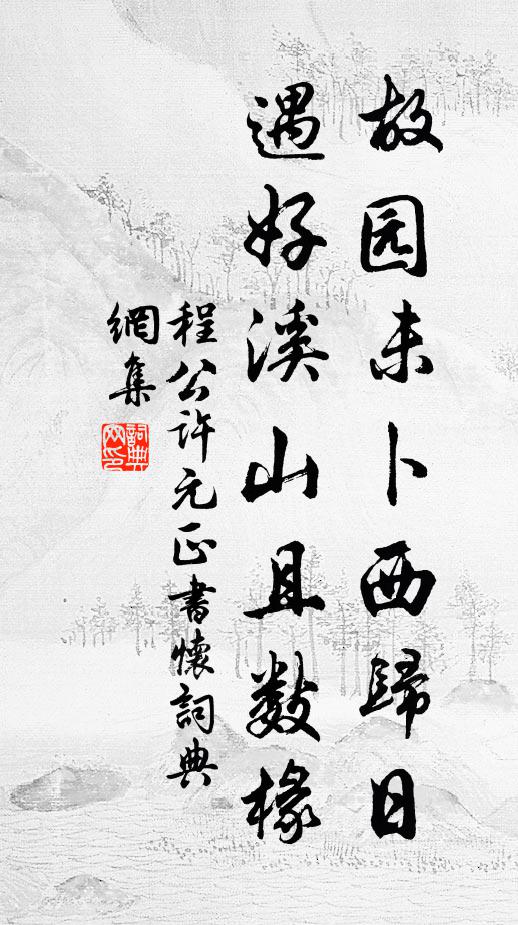 故园未卜西歸日
遇好溪山且数椽
程公许元正書懷詞典
網集
詞典
网印